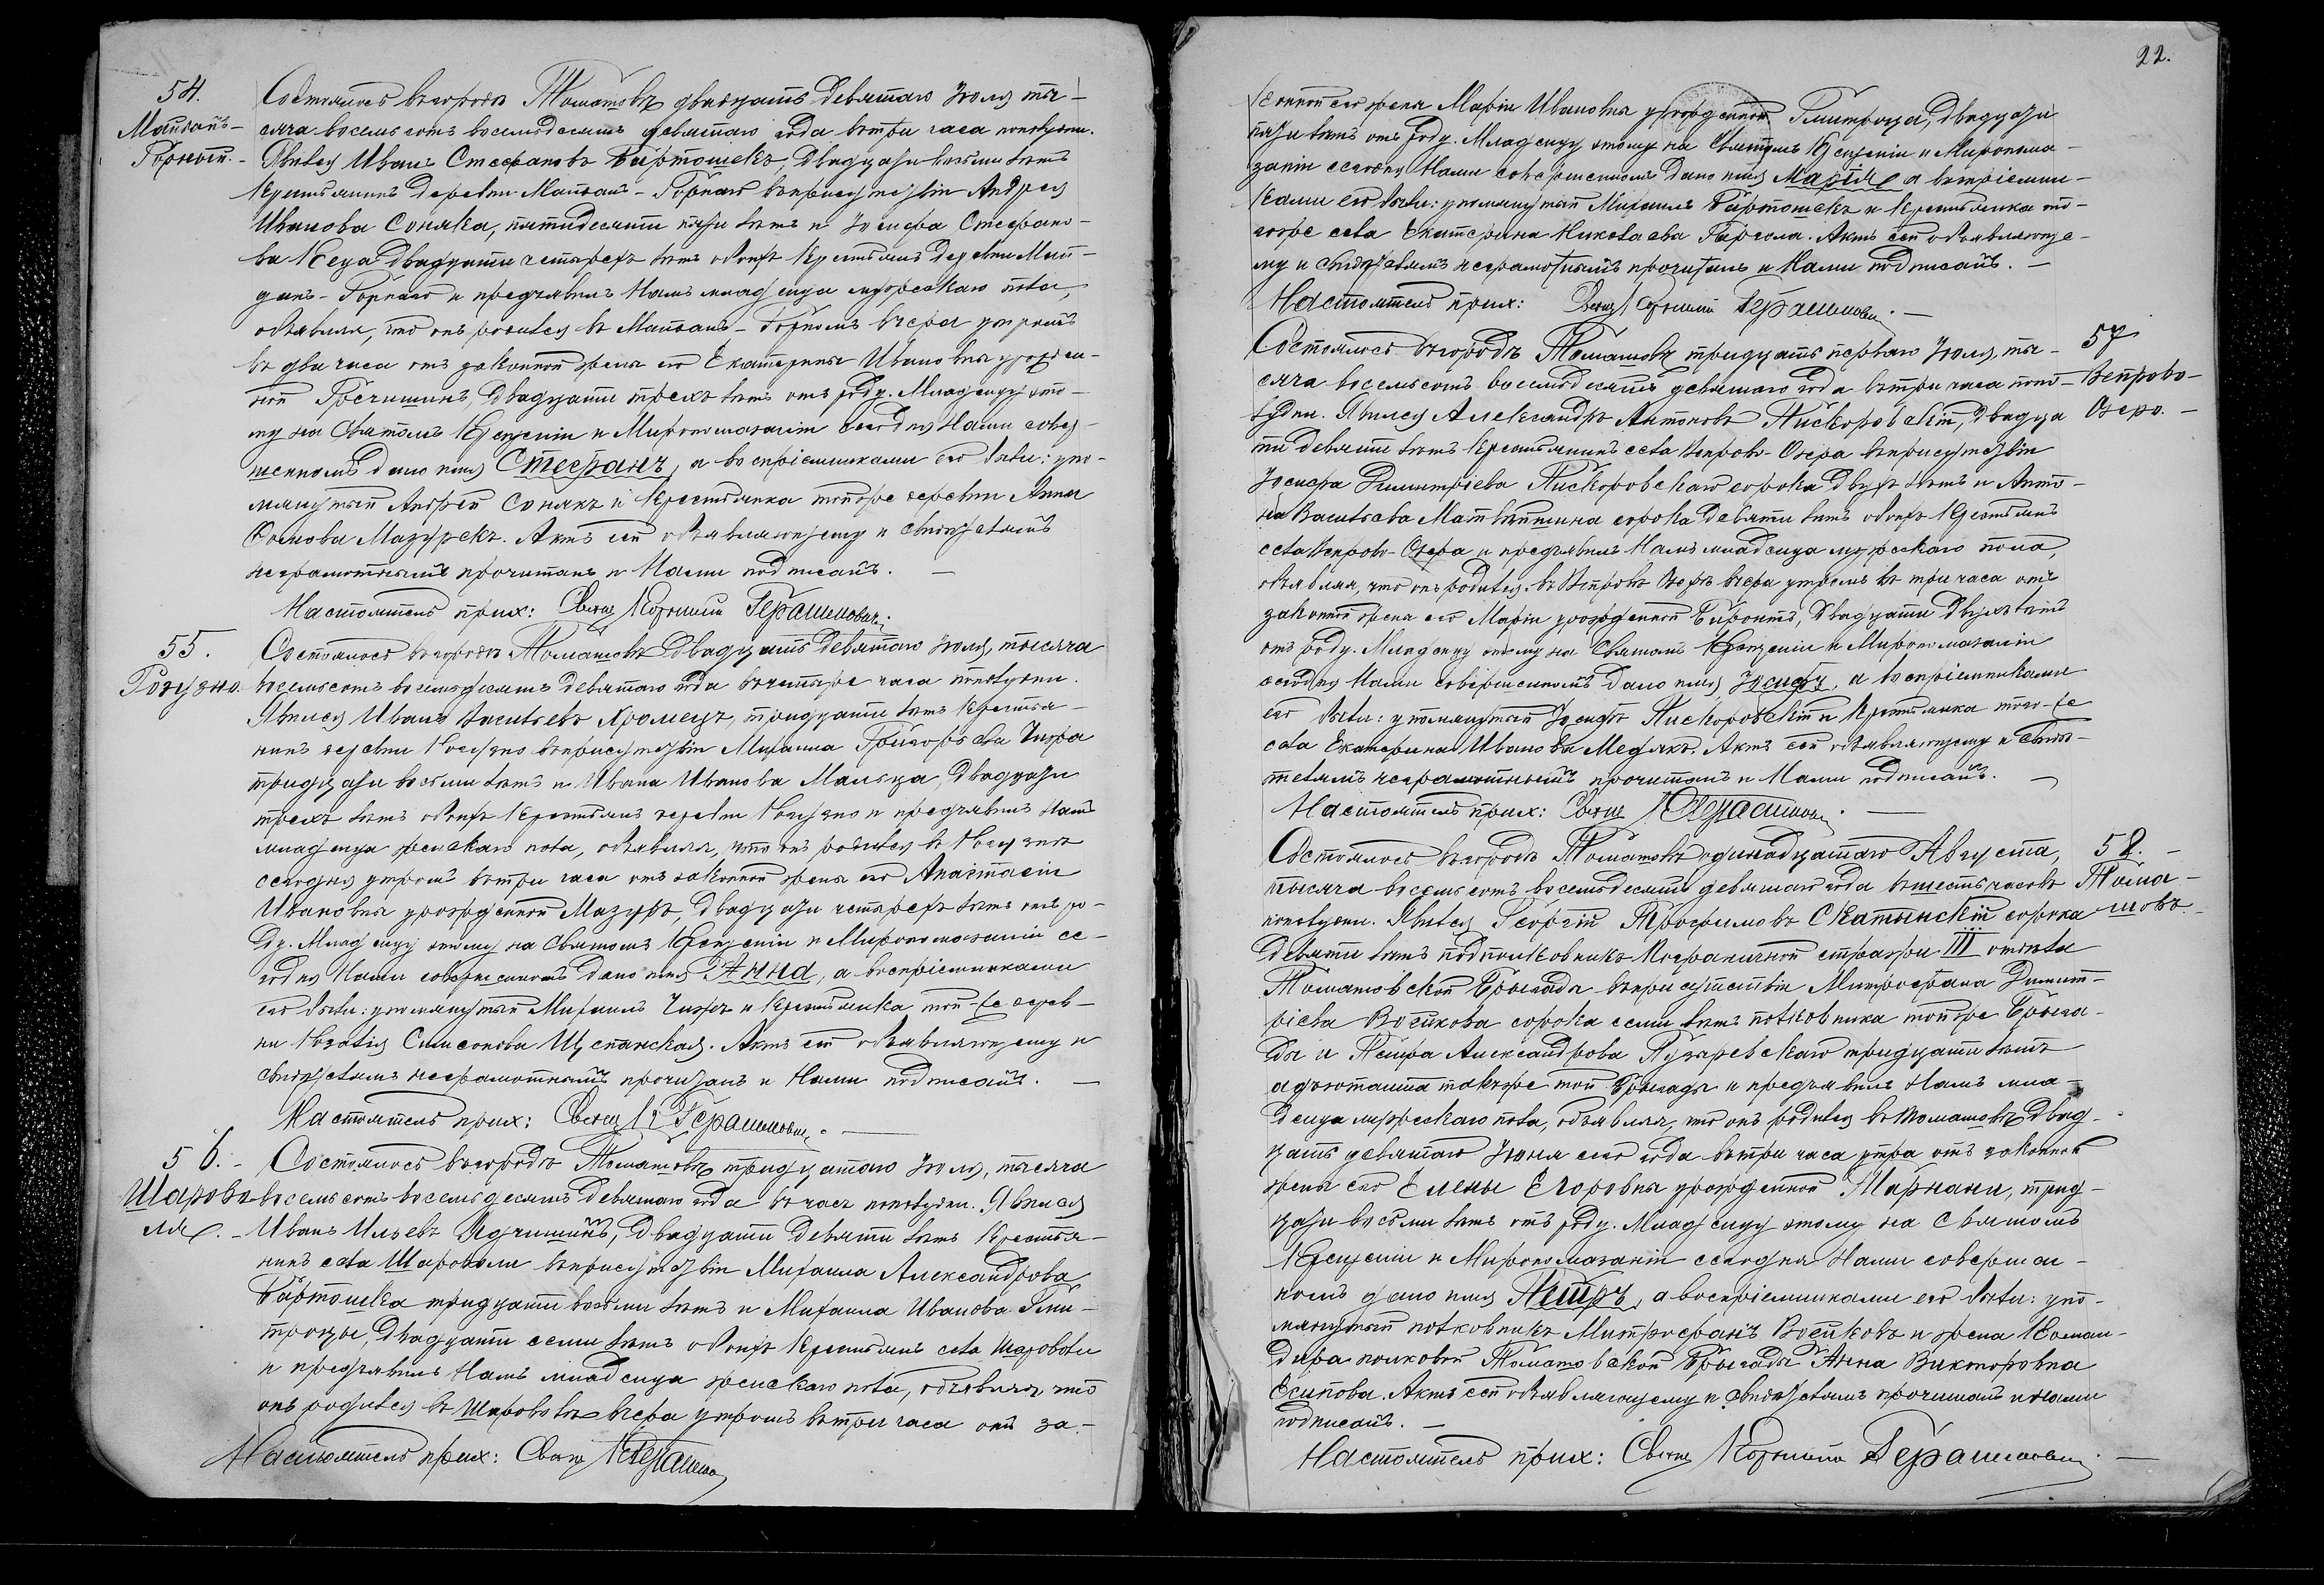 54.
Майданъ-
Горный.-
Состоялось въ городѣ Томашовѣ двадцать девятаго Іюля ты-
сяча восемьсотъ восемьдесятъ девятаго года въ три часа пополудни.
Явился Иванъ Стефановъ Бартошекъ, двадцати восьми лѣтъ
крестьянинъ деревни Майданъ-Горнаго въ присутствіи Андрея
Иванова Соняка, пятидесяти пяти лѣтъ и Іосифа Стефано-
ва двадцати четырехъ лѣтъ обоихъ крестьянъ деревни Май-
данъ-Горнаго и предъявилъ Намъ младенца мужескаго пола,
объявляя, что онъ родился въ Майданѣ-Горномъ вчера утромъ
въ два часа отъ законной жены его Екатерины Ивановны урожден-
ной Гречишинъ, двадцати трехъ лѣтъ отъ роду. Младенцу это-
му на Святомъ Крещеніи и Миропомазаніи сегодня Нами совер-
шенномъ дано имя Стефанъ, а воспріемниками его были: упо-
мянутый Андрей Сонякъ и крестьянка тойже деревни Анна
Фомова Мазурекъ. Актъ сей объявляющему и свидѣтелямъ
неграмотнымъ прочитанъ и Нами подписанъ. —
Настоятель прих: Свящ Корнилій Герашимовичъ.
55.
Рогузно.
Состоялось въ городѣ Томашовѣ двадцать девятаго Іюля, тысяча
восемьсотъ восемьдесятъ девятаго года въ четыре часа пополудни.
Явился Иванъ Васильевъ Хромецъ, тридцати лѣтъ крестья-
нинъ деревни Рогузно въ присутствіи Михаила Григорьева Чихра
тридцати восьми лѣтъ и Ивана Иванова Мальца, двадцати
трехъ лѣтъ обоихъ крестьянъ деревни Рогузно и предъявилъ Намъ
младенца женскаго пола, объявляя, что онъ родился въ Рогузнѣ
сегодня утромъ въ три часа отъ законной жены его Анастасіи
Ивановны урожденной Мазуръ, двадцати четырехъ лѣтъ отъ ро-
ду. Младенцу этому на Святомъ Крещеніи и Миропомазаніи се-
годня Нами совершенномъ дано имя Анна, а воспріемниками
его были: упомянутый Михаилъ Чихръ и крестьянка той-же дерев-
ни Симеонова Щепанская. Актъ сей объявляющему и
свидѣтелямъ неграмотнымъ прочитанъ и Нами подписанъ. —
Настоятель прих: Свящ К Герашимович. —
56.-
Шарово-
ля.-
Состоялось въ городѣ Томашовѣ тридцатаго Іюля, тысяча
восемьсотъ восемьдесятъ девятаго года въ часъ пополудни. Явился
Иванъ Ильевъ двадцати девяти лѣтъ крестья-
нинъ села Шароволи въ присутствіи Михаила Александрова
Бартошка тридцати восьми лѣтъ и Михаила Иванова
двадцати семи лѣтъ обоихъ крестьянъ села Шароволи
и предъявилъ Намъ младенца женскаго пола, объявляя что
онъ родился въ Шароволѣ вчера утромъ въ три часа отъ за-
Настоятель прих: Свящ К Герашимо
22.
конной его жены Маріи Ивановны урожденной двадцати
пяти лѣтъ отъ роду. Младенцу этому на Святомъ Крещеніи и Миропома-
заніи сегодня Нами совершенномъ дано имя Марія а воспріемни-
ками его были: упомянутый Михаилъ Бартошекъ и крестьянка то-
гоже села Екатерина Николаева Гаргола. Актъ сей объявляюще-
му и свидѣтелямъ неграмотнымъ прочитанъ и Нами подписанъ. —
Настоятель прих: Свящ Корнилій Герашимович. —
57
Вепрово-
Озеро. -
Состоялось въ городѣ Томашовѣ тридцать перваго Іюля, ты-
сяча восемьсотъ восемьдесятъ девятаго года въ три часа попо-
лудни. Явился Александръ Антоновъ Пискоровскій, двадца
ти девяти лѣтъ крестьянинъ села Вепрово-Озера въ присутствіи
Іосифа Димитріева Пискоровскаго сорока двухъ лѣтъ и Анто-
на Васильева Матвѣйшина сорока девяти лѣтъ обоихъ крестьянъ
села Вепрово-Озера и предъявилъ Намъ младенца мужескаго пола,
объявляя, что онъ родился въ Вепровѣ Озерѣ вчера утромъ въ три часа отъ
законной жены его Маріи урожденной двадцати двухъ лѣтъ
отъ роду. Младенцу этому на Святомъ Крещеніи и Миропомазаніи
сегодня Нами совершенномъ дано имя Іосифъ, а воспріемниками
его были: упомянутый Іосифъ Пискоровскій и крестьянка того-же
села Екатерина Иванова Медякъ. Актъ сей объявляющему и свидѣ-
телямъ неграмотнымъ прочитанъ и Нами подписанъ. —
Настоятель прих: Свящ К Герашимович. —
58. -
Тома-
шовъ.-
Состоялось въ городѣ Томашовѣ одинадцатаго Августа,
тысяча восемьсотъ восемьдесятъ девятаго года въ шесть часовъ
пополудни. Явился Георгій Трофимовъ Скатынскій сорока
девяти лѣтъ подполковникъ Пограничной стражи III отдѣла
Томашовской бригады въ присутствіи Митрофана Димит-
ріева Воейкова сорока семи лѣтъ полковника тойже Брига-
ды и Петра Александрова Пузыревскаго тридцати лѣтъ
адъютанта такъже той Бригады и предъявилъ Намъ мла-
денца мужескаго пола, объявляя, что онъ родился въ Томашовѣ двад-
цать девятаго Іюня сего года въ три часа утра отъ законной
жены его Елены Егоровны урожденной Маркани, трид-
цати восьми лѣтъ отъ роду. Младенцу этому на Святомъ
Крещеніи и Миропомазаніи сегодня Нами совершен-
номъ дано имя Петръ, а воспріемниками его были: упо-
мянутый полковникъ Митрофанъ Воейковъ и жена Коман-
дира полковой Томашовской Бригады Анна Викторовна
Есипова. Актъ сей объявляющему и свидѣтелямъ прочитанъ и Нами
подписанъ. —
Настоятель прих: Свящ Корнилій Герашимович. —